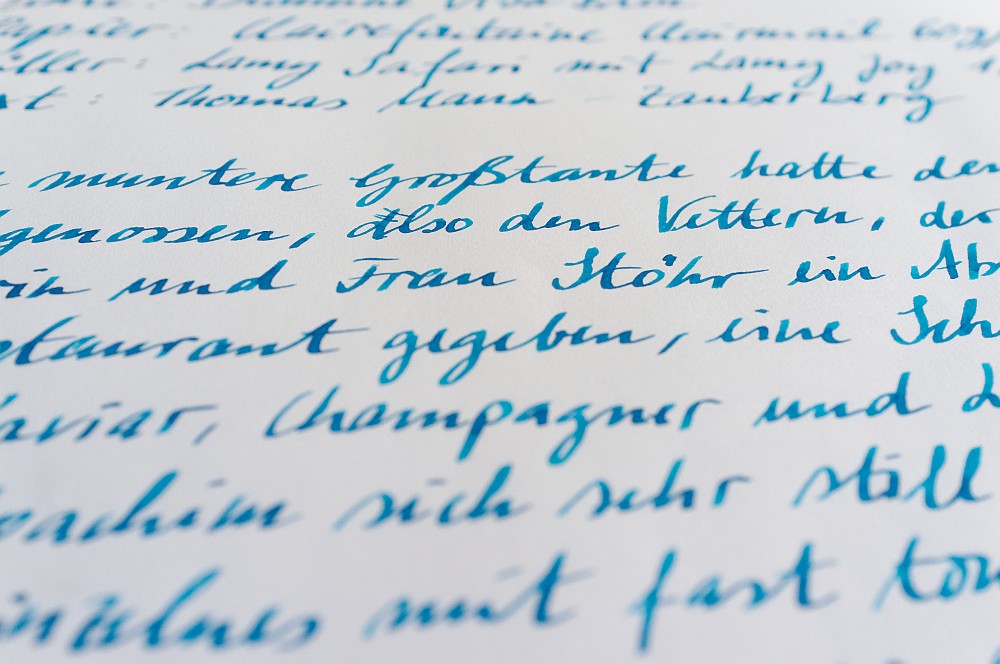 Papier: Clairefontaine Clairmail 60g/
üller: Lamy Safari mit Lamy Joy 1.
xt: Thomas Mann – Zauberberg
muntere Großtante hatte den
genossen, also den Vettern, der
rin und Frau Stöhr ein Ab
staurant gegeben, eine Sch
Kaviar, Champagner und L
Joachim sich sehr still
inzelnes mit fast ton